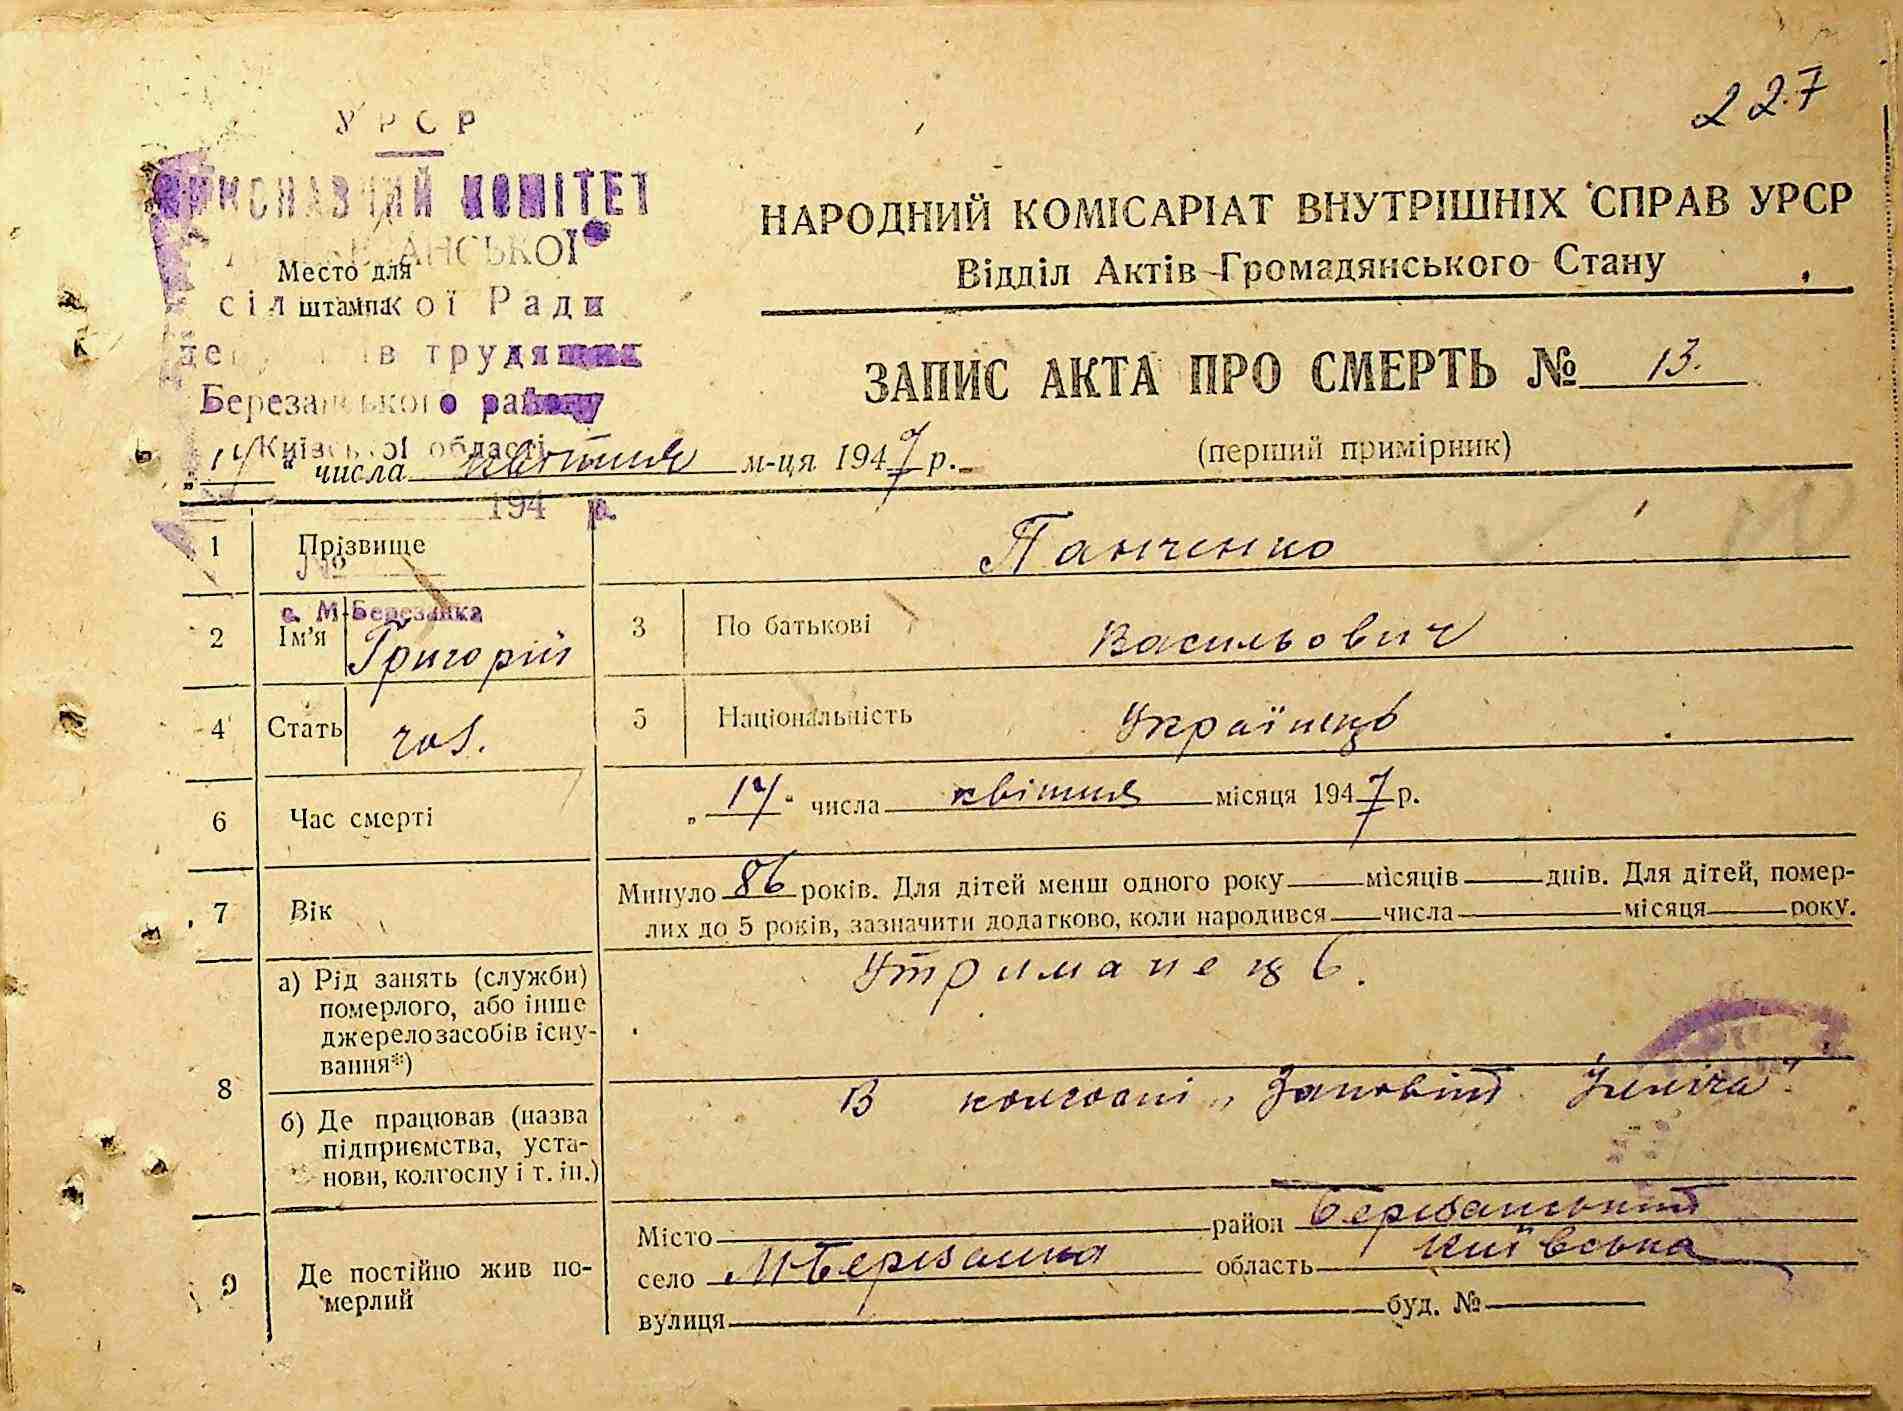 227
УРСР
ВИКОНАВЧИЙ КОМІТЕТ
Место для
штампа
сільської Ради
депутатів трудящих
Березанського району
Київської області
194 р.
№
с. М-Березанка
НАРОДНИЙ КОМІСАРІАТ ВНУТРІШНІХ СПРАВ УРСР
Відділ Актів Громадянського Стану
ЗАПИС АКТА ПРО СМЕРТЬ № 13.
(перший примірник)
„17“ числа квітня м-ця 1947 р.
1 Прізвище Панченко
2 Ім'я Григорій 3 По батькові Васильович
4 Стать чол. 5 Національність Українець
6 Час смерті „17“ числа квітня місяця 1947 р.
7 Вік Минуло 86 років. Для дітей менш одного року місяців днів. Для дітей, помер-
лих до 5 років, зазначити додатково, коли народився числа місяця року.
8 а) Рід занять (служби)
померлого, або інше
джерело засобів існу-
вання*)
Утриманець.
б) Де працював (назва
підприємства, уста-
нови, колгоспу і т. ін.)
В колгоспі „Заповіт Ілліча"
9 Де постійно жив по-
мерлий
Місто район Березанський
село М-Березанка область Київська
вулиця буд. №